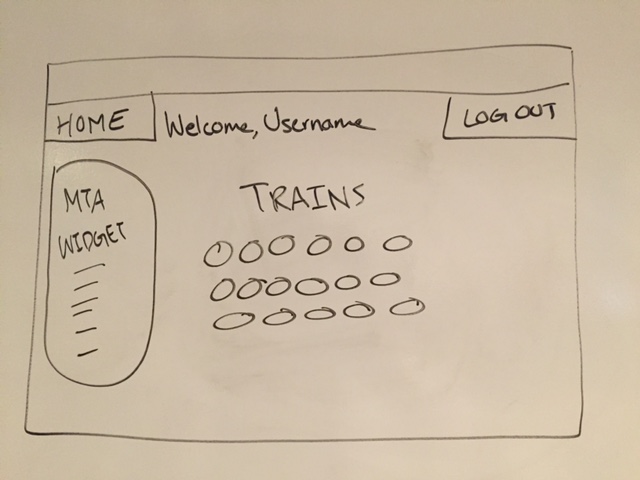 HOME
Welcome, Username
LOG OUT
MTA
WIDGET
TRAINS